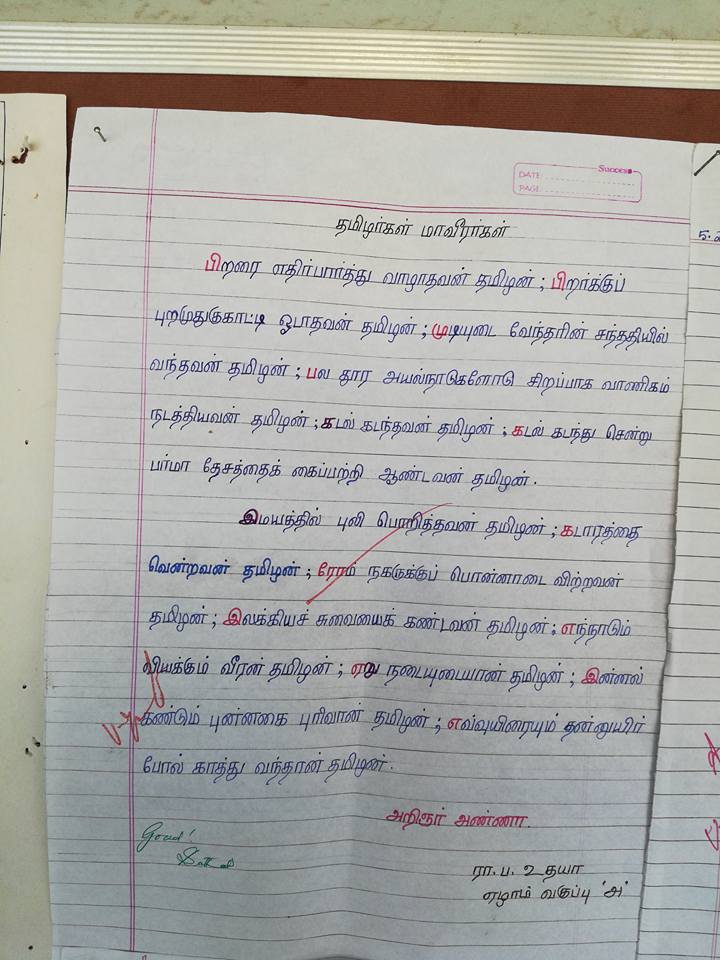 Success
DATE:
PAGE:
தமிழர்கள் மாவீரர்கள்
5.2
பிறரை எதிர்பார்த்து வாழாதவன் தமிழன் ; பிறர்க்குப்
புறமுதுகுகாட்டி ஓடாதவன் தமிழன் ; முடியுடை வேந்தரின் சந்ததியில்
வந்தவன் தமிழன் ; பல தூர அயல்நாடுகளோடு சிறப்பாக வாணிகம்
நடத்தியவன் தமிழன் ; கடல் கடந்தவன் தமிழன் ; கடல் கடந்து சென்று
பர்மா தேசத்தைக் கைப்பற்றி ஆண்டவன் தமிழன் .
இமயத்தில் புலி பொறித்தவன் தமிழன் ; கடாரத்தை
வென்றவன் தமிழன் ; ரோம் நகருக்குப் பொன்னாடை விற்றவன்
தமிழன் ; இலக்கியச் சுவையைக் கண்டவன் தமிழன் ; எந்நாடும்
வியக்கும் வீரன் தமிழன் ; ஏறு நடையுடையான் தமிழன் ; இன்னல்
கண்டும் புன்னகை புரிவான் தமிழன் ; எவ்வுயிரையும் தன்னுயிர்
போல் காத்து வந்தான் தமிழன் .
அறிஞர் அண்ணா.
Good!
ரா. ப. உதயா
ஏழாம் வகுப்பு 'அ'